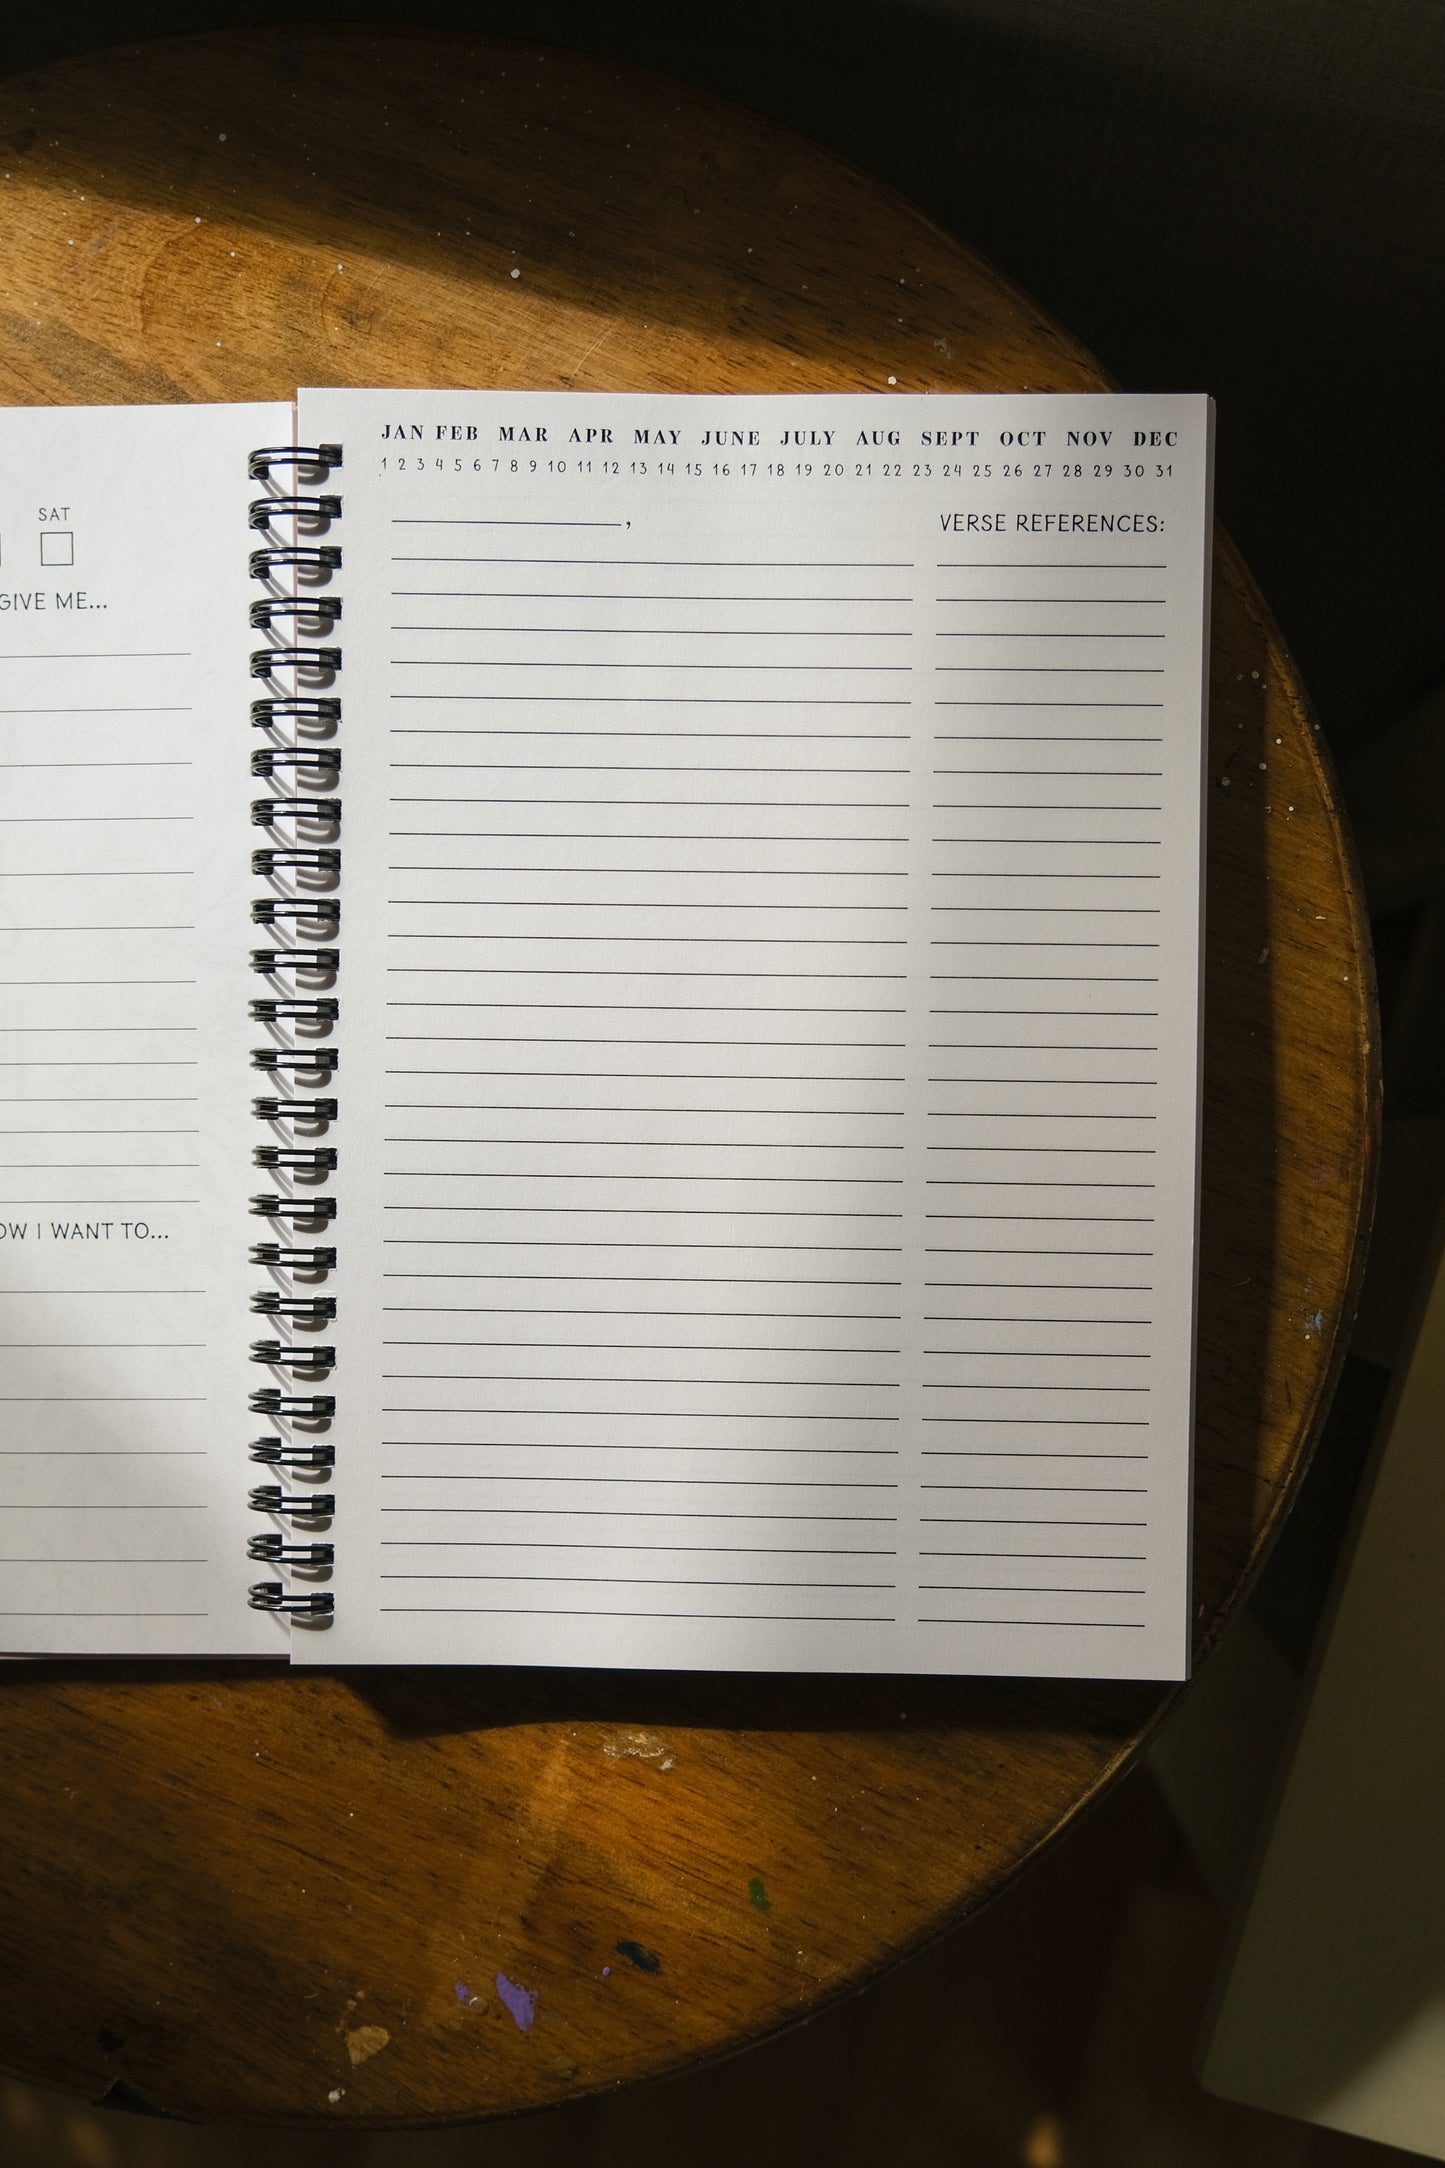 SAT
GIVE ME...
OW I WANT TO...
JAN FEB MAR APR MAY JUNE JULY AUG SEPT OCT NOV DEC
1 2 3 4 5 6 7 8 9 10 11 12 13 14 15 16 17 18 19 20 21 22 23 24 25 26 27 28 29 30 31
,
VERSE REFERENCES: